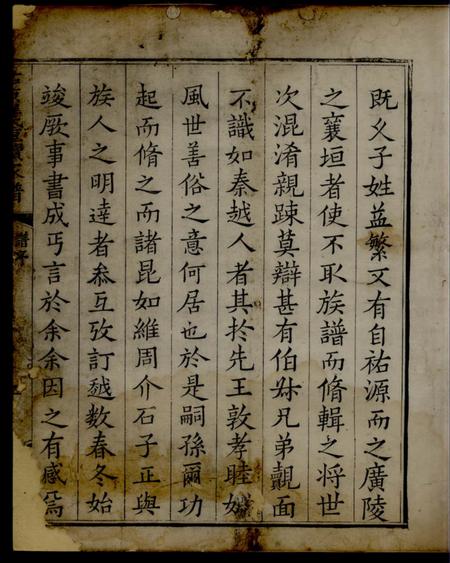 既久子姓益繁又有自祐源而之廣陵
之襄垣者使不取族譜而脩輯之将世
次混淆親踈莫辯甚有伯叔兄弟覿面
不識如秦越人者其扵先王敦孝睦婣
風世善俗之意何居也於是嗣孫爾功
起而脩之而諸昆如維周介石子正與
族人之明達者叅互攷訂越數春冬始
竣厥事書成丐言於余余因之有感焉
譜序